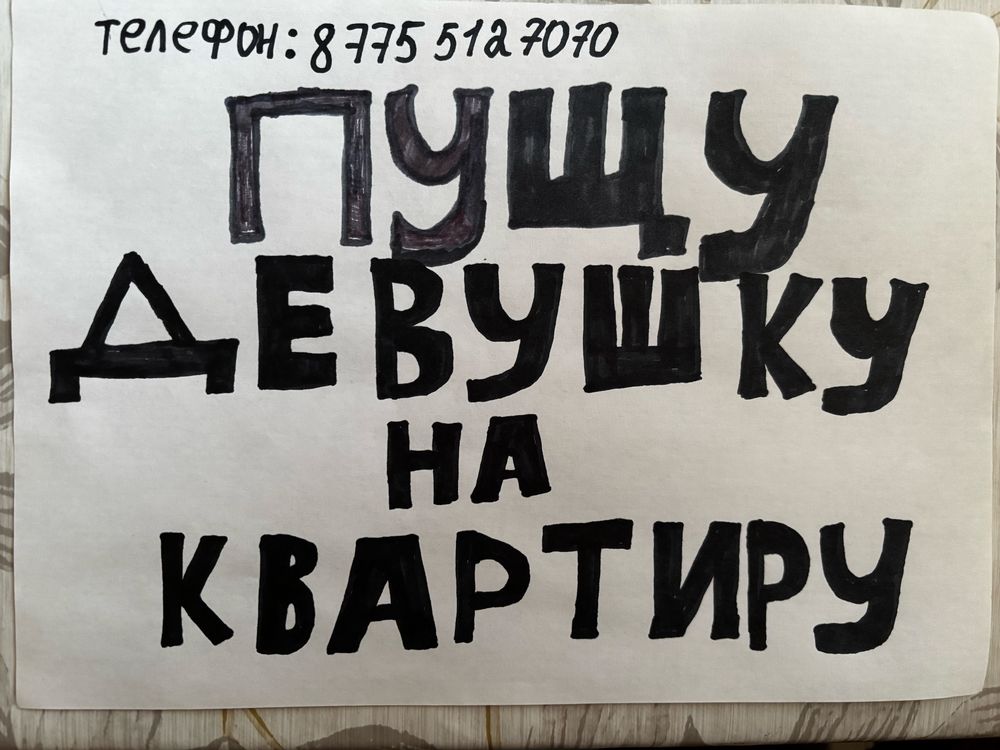 телефон: 8 775 512 7070
ПУЩУ
ДЕВУШКУ
НА
КВАРТИРУ